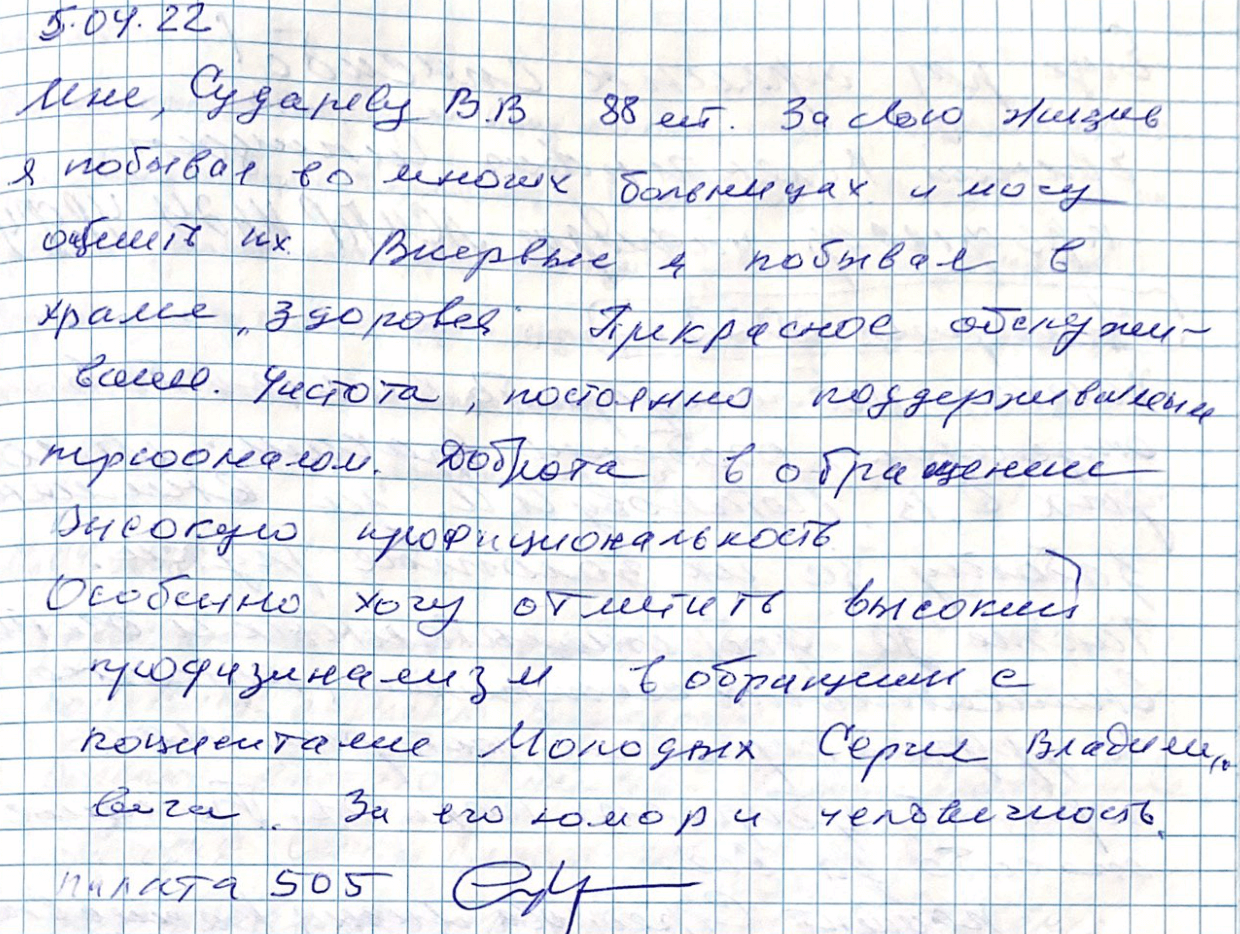 5.04.22
Мне, Судареву В.В 88 лет. За свою жизнь
я побывал во многих больницах и могу
оценить их. Впервые я побывал в
храме "Здоровья" Прекрасное обслужи-
вание. Чистота, постоянно поддерживаемый
персоналом. Доброта в обращение
Высокую профициональность
Особенно хочу отметить высокий
профизинализм в обращении с
поциентами Молодых Сергея Владими,
вича. За его юмор и человечность.
палата 505